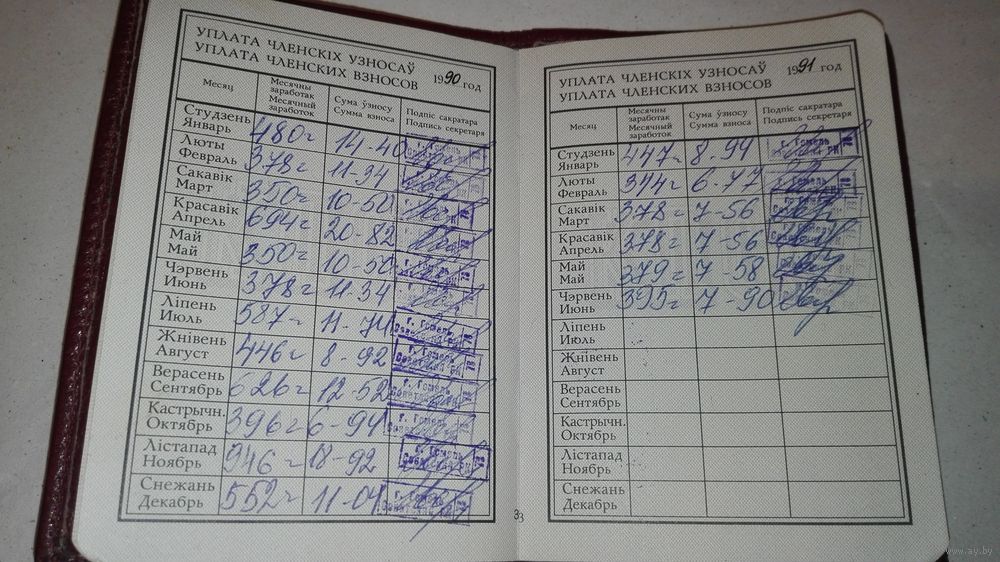 УПЛАТА ЧЛЕНСКІХ УЗНОСАЎ
УПЛАТА ЧЛЕНСКИХ ВЗНОСОВ
1990 год
Месяц
Месячны заработак
Месячный заработок
Сума ўзносу
Сумма взноса
Подпіс сакратара
Подпись секретаря
Студзень
Январь
480 14-40
Люты
Февраль
378 11-34
Сакавік
Март
350 10-50
Красавік
Апрель
694 20-82
Май
Май
350 10-50
Чэрвень
Июнь
378 11-34
Ліпень
Июль
587 11-74
г. Гомель
Жнівень
Август
446 8-92
г. Гомель
Верасень
Сентябрь
626 12-52
г. Гомель
Кастрычн.
Октябрь
396 6-94
г. Гомель
Лістапад
Ноябрь
946 18-92
г. Гомель
Снежань
Декабрь
552 11-04
г. Гомель
33
УПЛАТА ЧЛЕНСКІХ УЗНОСАЎ
УПЛАТА ЧЛЕНСКИХ ВЗНОСОВ
1991 год
Месяц
Месячны заработак
Месячный заработок
Сума ўзносу
Сумма взноса
Подпіс сакратара
Подпись секретаря
Студзень
Январь
447 8-94
г. Гомель
Люты
Февраль
344 6-77
г. Гомель
Сакавік
Март
378 7-56
Красавік
Апрель
378 7-56
Май
Май
379 7-58
Чэрвень
Июнь
395 7-90
Ліпень
Июль
Жнівень
Август
Верасень
Сентябрь
Кастрычн.
Октябрь
Лістапад
Ноябрь
Снежань
Декабрь
www.ay.by